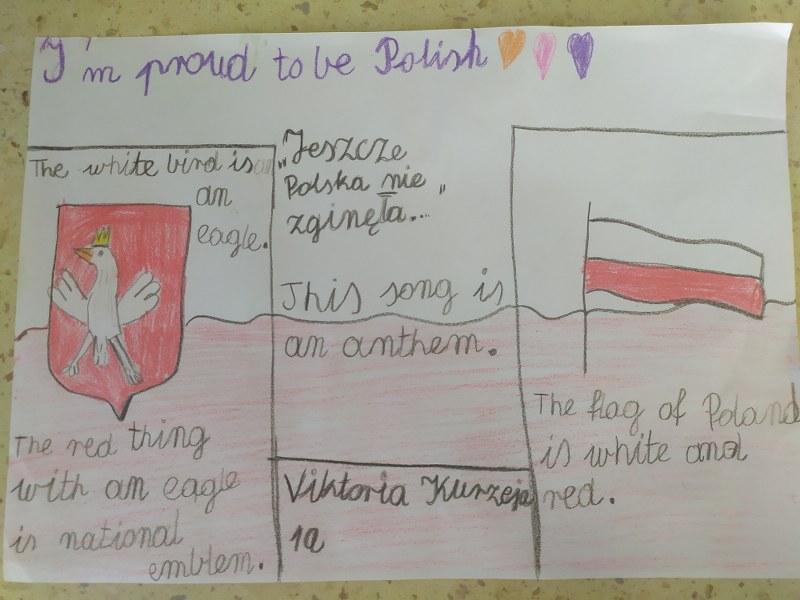 I'm proud to be Polish
The white bird is
an
eagle.
The red thing
with an eagle
is national
emblem.
„Jeszcze
Polska nie „
zginęła...
This song is
an anthem.
Viktoria Kurzeja
1a
The flag of Poland
is white and
red.